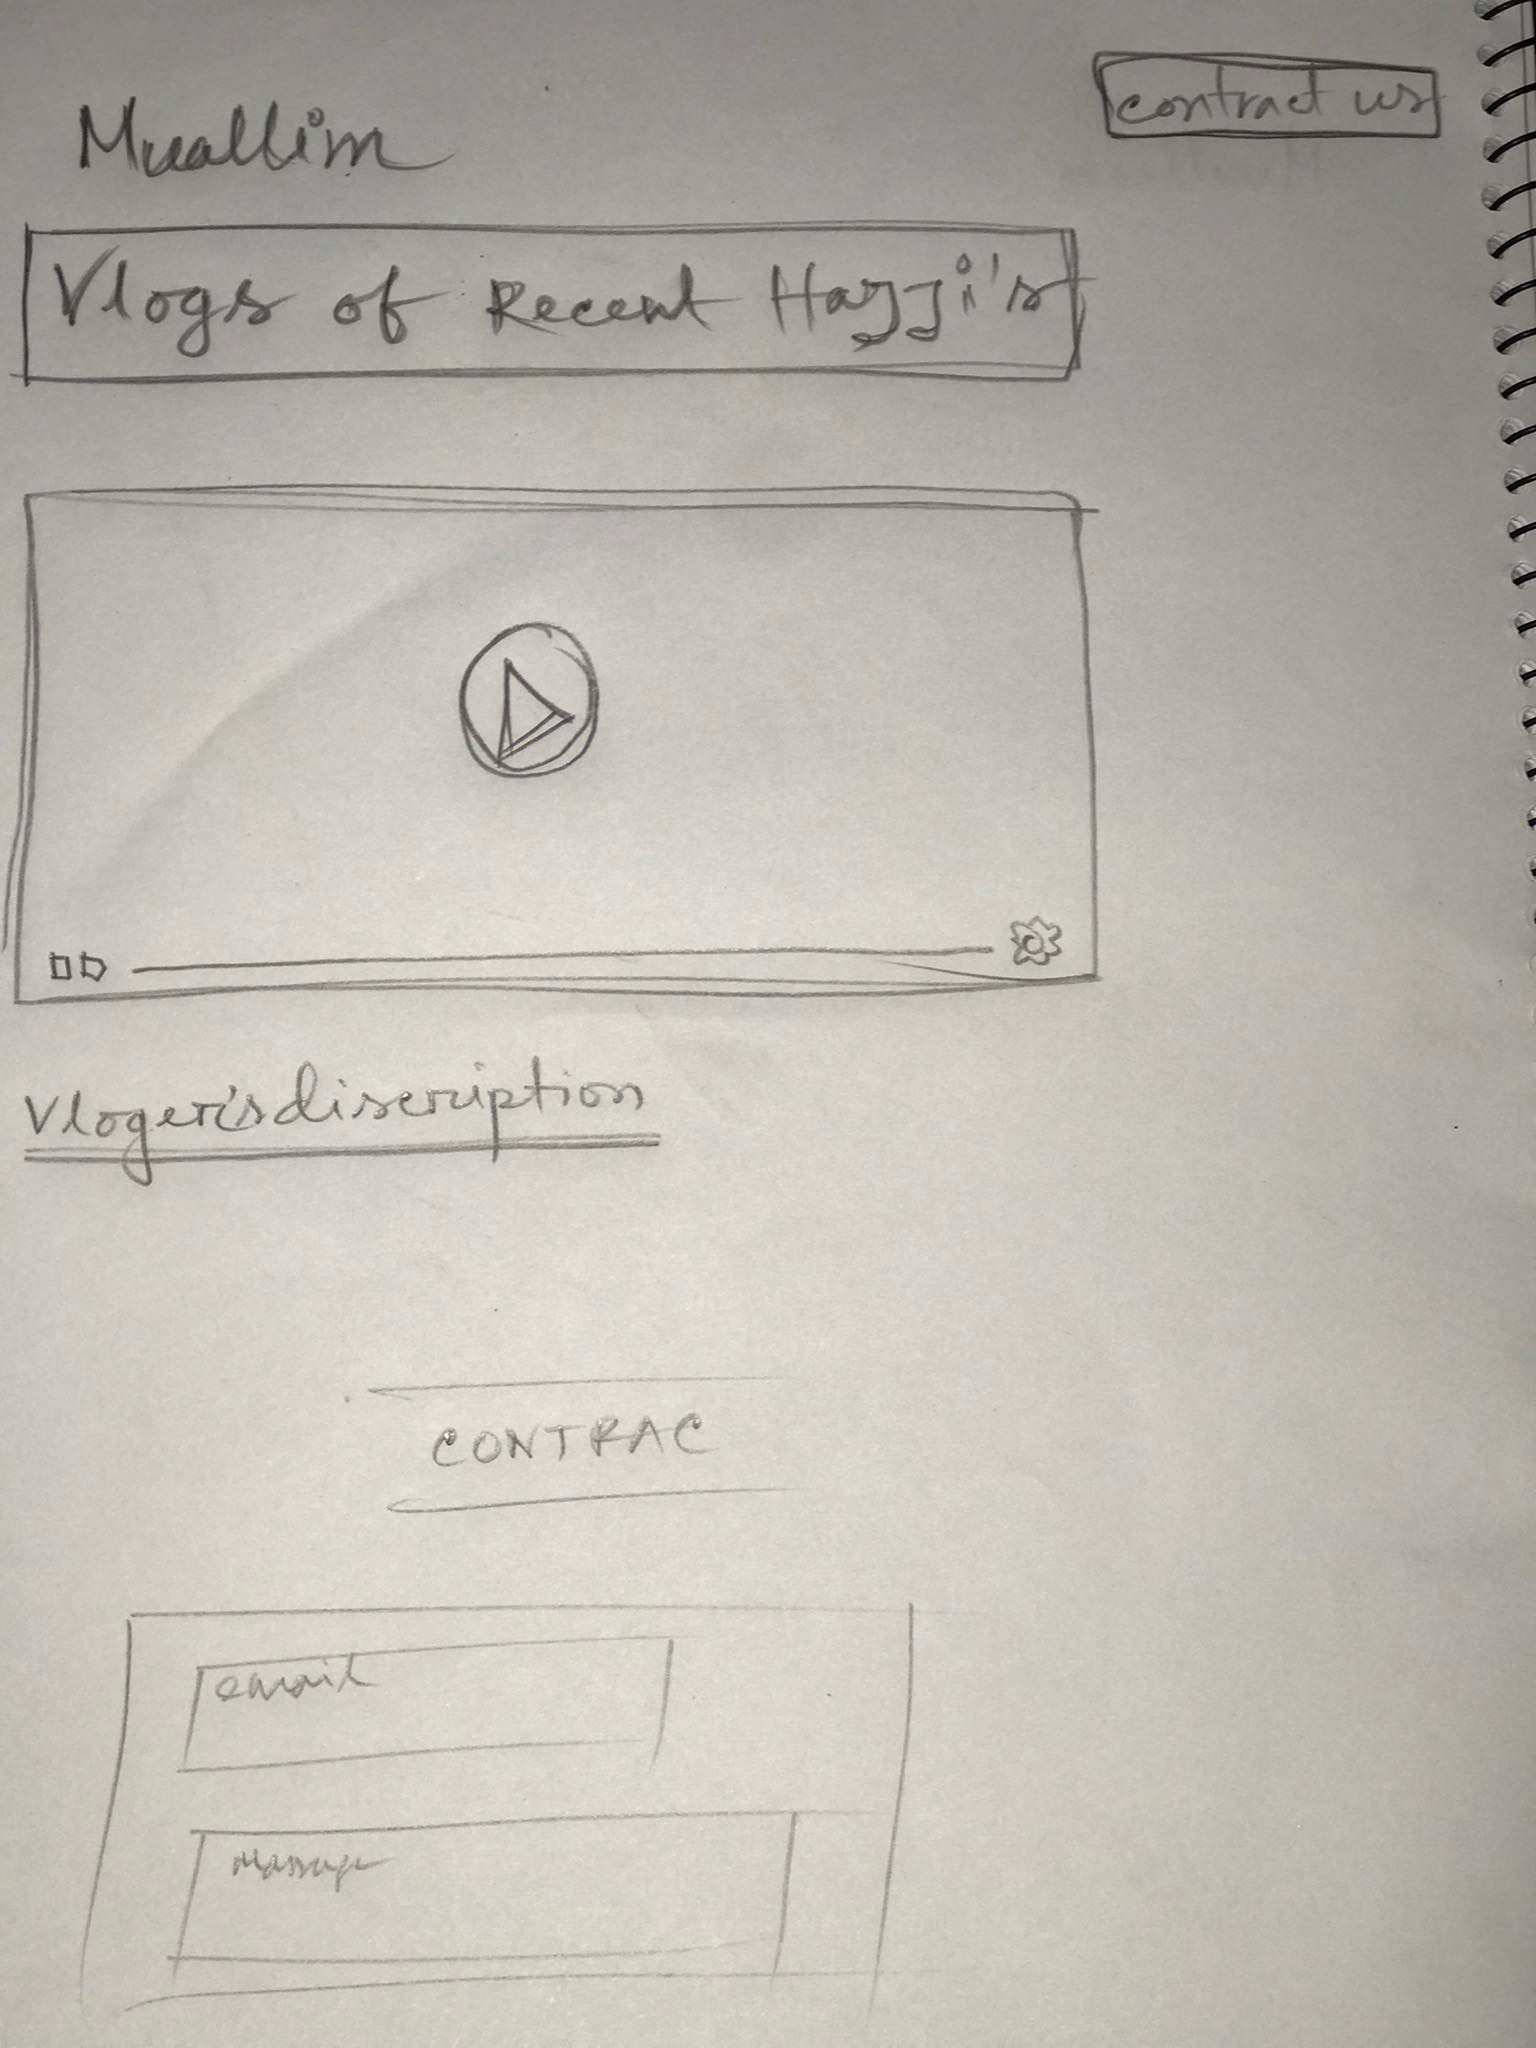 Muallim
contract us
Vlogs of Recent Hajji's
Vloger's discription
CONTRAC
email
Massage